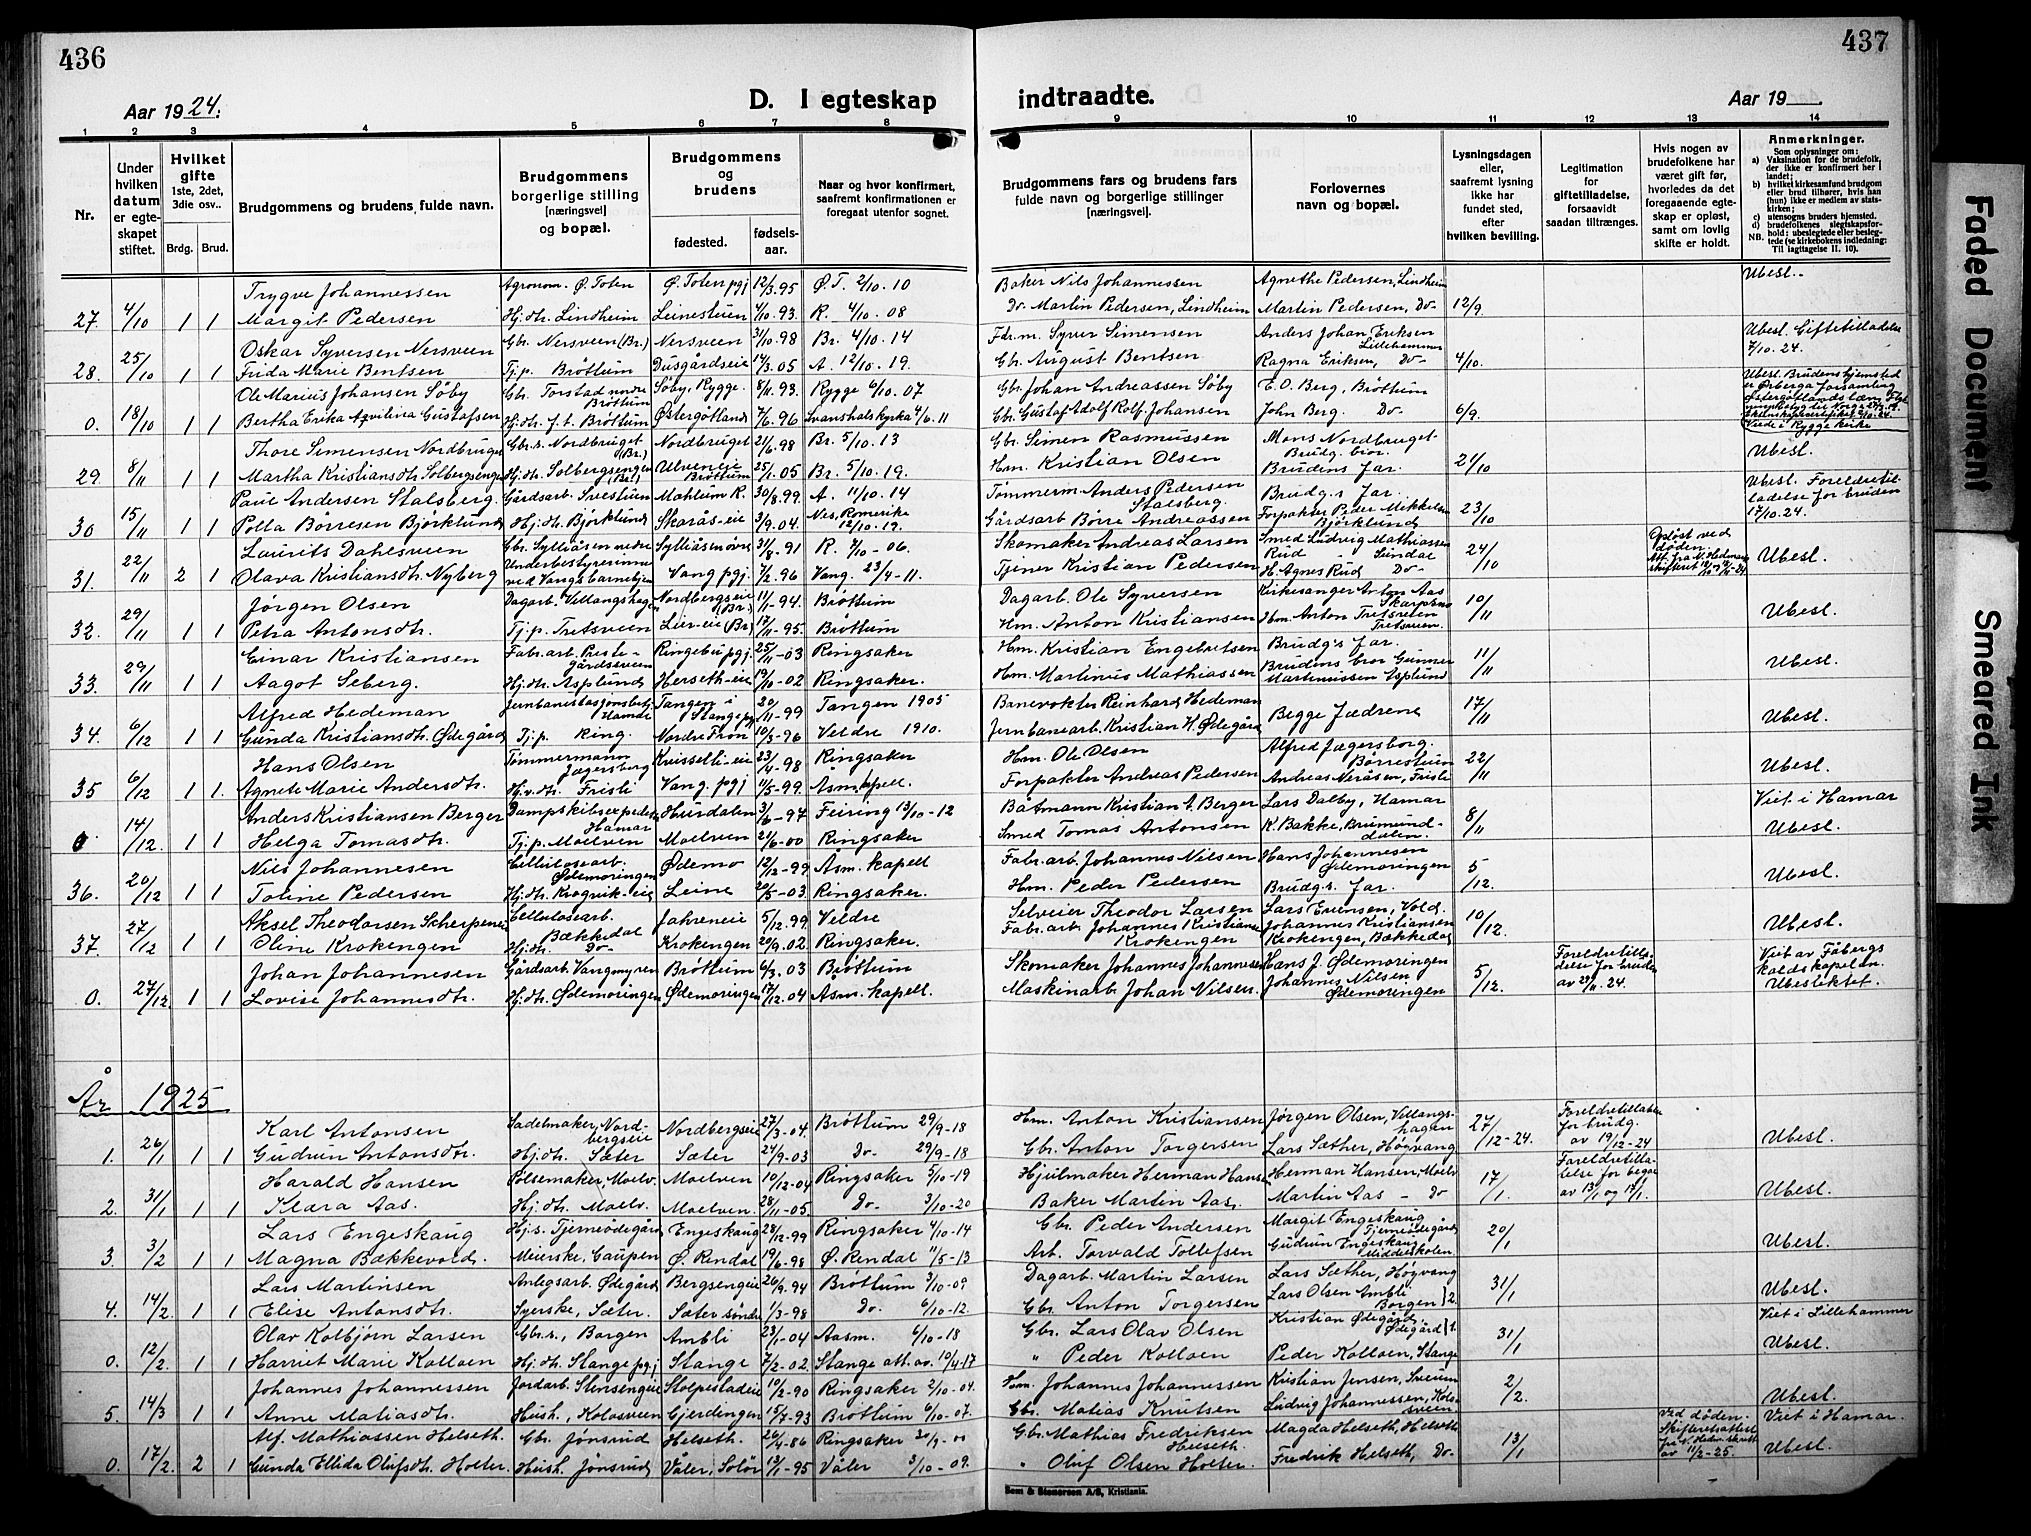 436
437
Aar 1924.
D. I egteskap
indtraadte.
Aar 19
1 2 3 4 5 6 7 8 9 10 11 12 13 14
Nr.
Under hvilken datum er egteskapet stiftet.
Hvilket gifte 1ste, 2det, 3die osv..
Brdg. Brud.
Brudgommens og brudens fulde navn.
Brudgommens borgerlige stilling [næringsvei] og bopæl.
Brudgommens og brudens
fødested.
fødselsaar.
Naar og hvor konfirmert, saafremt konfirmationen er foregaat utenfor sognet.
Brudgommens fars og brudens fars fulde navn og borgerlige stillinger [næringsvei].
Forlovernes navn og bopæl.
Lysningsdagen eller, saafremt lysning ikke har fundet sted, efter hvilken bevilling.
Legitimation for giftetilladelse, forsaavidt saadan tiltrænges.
Hvis nogen av brudefolkene har været gift før, hvorledes da det foregaaende egteskap er opløst, samt om lovlig skifte er holdt.
Anmerkninger.
Som oplysninger om:
a) Vaksination for de brudefolk, der ikke er konfirmert her i landet;
b) hvilket kirkesamfund brudgom eller brud tilhører, hvis han (hun) ikke er medlem av statskirken;
c) utensogns bruders hjemsted.
d) brudefolkenes slegtskapsforhold: ubeslegtede eller beslegtede (se kirkebokens indledning: NB. Til iagttagelse II. 10).
Trygve Johannessen Agronom. Ø. Toten Ø. Toten pgj 12/3.95 Ø.T. 2/10. 10 Baker Nils Johannessen Agnethe Pedersen, Lindheim Ubesl.
27. 4/10 1 1 Margit Pedersen Hj. dtr. Lindheim Leinestuen 4/10.93. R. 4/10.08 Do Martin Pedersen, Lindheim Martin Pedersen, Do 12/9
Oskar Syversen Nersveen Gbr. Nersveen (Br.) Nersveen 31/10.98 Br. 4/10.14 Fdr.m. Syver Simensen Anders Johan Eriksen Lillehammer Ubesl. Giftetilladelse 7/10.24.
28. 25/10 1 1 Frida Marie Bentsen Tj.p. Brøttum Dusgårdseie 14/3.05 A. 12/10.19. Gbr. August Bentsen Ragna Eriksen, Do 4/10.
Ole Marius Johansen Søby Gbr. Torstad nedre Brøttum Søby, Rygge. 8/11.93. Rygge 6/10.07 Gbr. Johan Andreassen Søby E.O. Berg, Brøttum Ubesl. Brudens hjemsted er Ørberga forsamling Østergötlands læn.
0. 18/10 1 1 Bertha Erika Aqvilina Gustafsen Hj. dtr. f.t. Brøttum Østergøtland 7/6.96 Svanshals kyrka 4/6.11 Gbr. Gustaf Adolf Rolf Johansen John Berg. Do 6/9. Viede i Rygge kirke
Thore Simensen Nordbruget Gbr.s. Nordbruget (Br.) Nordbruget 21/6.98 Br. 5/10.13 Gbr. Simen Rasmussen Mons Nordbruget Brudg. bror. Ubesl.
29. 8/11 1 1 Martha Kristiansdtr. Solbergsengen Hj. dtr. Solbergsengen (Br.) Ulveneie Brøttum 25/1.05 Br. 5/10.19. Hm. Kristian Olsen Brudens far. 21/10
Paul Andersen Stalsberg. Gårdsarb. Svestuen Mæhlum R. 30/8.99. A. 11/10.14 Tømmerm. Anders Pedersen Stalsberg. Brudg.s far. Ubesl. Foreldretilladelse for bruden 17/10.24.
30 15/11 1 1 Polla Børresen Bjørklund Hj. dtr. Bjørklund Skarås-eie 3/9.04. Nes, Romerike 12/10.19. Gårdsarb Børre Andreassen Forpakter Peder Mikkelsen Bjørklund 23/10
Laurits Dahlsveen Gbr. Sylliåsen nedre Sylliåsen øvre 31/8.91 R. 7/10-06. Skomaker Andreas Larsen Smed Ludvig Mathiassen Rud Lindal Opløst ved døden.
31. 22/11 2 1 Olava Kristiansdtr. Nyberg Underbestyrerinne ved Vangs barnehjem Vang pgj. 7/2.96 Vang. 23/4-11. Tjener Kristian Pedersen H. Agnes Rud Do 24/10 Ubesl.
Jørgen Olsen Dagarb. Vellangshagen Nordbergseie (Br.) 11/1-94. Brøttum Dagarb. Ole Syversen Kirkesanger Anton Aas Skarpsno
32. 29/11 1 1 Petra Antonsdtr. Tj.p. Tretsveen Lier-eie (Br) 17/11-95. Brøttum Hm. Anton Kristiansen Hm. Anton Tretsveen Tretsveen. 10/11 Ubesl.
Einar Kristiansen Fabr.arb. Prestegårdsveen Ringebu pgj. 25/11-03 Ringsaker Hm. Kristian Engebretsen Brudg's far.
33. 29/11 1 1 Aagot Seberg. Hj. dtr. Asplund Herseth-eie 19/10-02 Ringsaker. Hm. Martinus Mathiassen Brudens bror Gunner Martinussen Asplund 11/11 Ubesl.
Alfred Hedeman Jernbanestasjonsbetj. Hamar Tangen i Stange pgj 20/11-99 Tangen 1905 Banevokter Reinhard Hedeman
34. 6/12 1 1 Gunda Kristiansdtr. Ødegård Tj.p. Ring. Nordre Fron 10/3-96 Veldre 1910. Jernbanearb. Kristian K. Ødegård Begge fædrene 17/11 Ubesl.
Hans Olsen Tømmermann Jægersborg Krisselti-eie 23/4-98 Ringsaker Hm. Ole Olsen Alfred Jægersborg. Børrestuen
35 6/12 1 1. Agnete Marie Andersdtr. Hj.v. dtr. Fristi Vang. pgj 14/5-99. Åsm. kapell. Forpakter Andreas Pedersen Andreas Neråsen, Fristi 22/11 Ubesl.
Anders Kristiansen Berger Dampskibsexpeditør Hamar Hurdalen 3/6-97 Feiring 13/10-12 Båtmann Kristian A. Berger Lars Dalby, Hamar Viet i Hamar
0 14/12. 1 1 Helga Tomasdtr. Tj.p. Moelven Moelven 21/6-00 Ringsaker Smed Tomas Antonsen K. Bakke, Brumunddalen. 8/11 Ubesl.
Nils Johannesen Cellulosearb. Ødemoringen Ødemo 12/12-99 Åsm. kapell Fabr.arb. Johannes Nilsen Hans Johannesen Ødemoringen
36. 20/12 1 1 Toline Pedersen Hj. dtr. Krogvik-eie Leine 20/5-03 Ringsaker. Hm. Peder Pedersen Brudg.s far. 5/12. Ubesl.
Aksel Theodorsen Scherpeneie Cellulosearb. Bækkedal Jahreneie 5/12.99 Veldre Selveier Theodor Larsen Lars Evensen, Vold.
37. 27/12 1 1 Oline Krokengen Hj. dtr. Do Krokengen 20/9.02. Ringsaker. Fabr. arb. Johannes Kristiansen Krokengen Johannes Kristiansen Krokengen, Bækkedal 10/12. Ubesl.
Johan Johannesen Gårdsarb. Vangmyren Brøttum 6/3.03 Brøttum Skomaker Johannes Johannesen Hans J. Ødemoringen Foreldretilladelse for bruden av 29/11.24. Viet av Fåbergs kaldskapelan.
0. 27/12. 1 1 Lovise Johannesdtr. Hj. dtr. Ødemoringen Ødemoringen 17/12.04 Åsm. kapell. Maskinarb Johan Nilsen. Johannes Nilsen Ødemoringen 5/12. Ubeslektet.
År 1925
Karl Antonsen Sadelmaker, Nordbergseie Nordbergseie 27/3-04. Brøttum 29/9-18 Hm. Anton Kristiansen Jørgen Olsen, Vellangshagen Foreldretilladelse for brudg. av 19/12-24
1. 26/1 1 1 Gudrun Antonsdtr. Hj. dtr. Sæter Sæter 24/9-03 Do 29/9-18 Gbr. Anton Torgersen Lars Sæther, Høgvang 27/12-24. Ubesl.
Harald Hansen Pølsemaker, Moelv. Moelven 10/12-04 Ringsaker 5/10-19 Hjulmaker Herman Hansen Herman Hansen, Moelv Foreldretilladelse for begge av 13/1 og 15/1.
2. 31/1 1 1 Klara Aas. Hj. dtr. Moelv. Moelven. 28/11-05. Do. 3/10-20 Baker Martin Aas. Martin Aas - Do 17/1. Ubesl.
Lars Engeskaug Hj.s. Tjerneødegård Engeskaug 28/12-99 Ringsaker 4/10-14 Gbr. Peder Andersen Margit Engeskaug Tjerneødegård,
3. 3/2 1 1 Magna Bækkevold. Meierske, Gaupen Ø. Rendal 19/6-98 Ø. Rendal 11/5-13 Arb. Torvald Tollefsen Gudrun Engeskaug Middelskolen. 20/1 Ubesl.
Lars Martinsen Anlegsarb. Ødegård Bergsengeie 26/9.94 Brøttum 3/10-09 Dagarb. Martin Larsen Lars Sæther, Høgvang
4. 14/2. 1 1 Elise Antonsdtr. Syerske, Sæter. Sæter søndre 1/3-98 Do. 6/10-12. Gbr. Anton Torgersen Lars Olsen Ambli Borgen }2. 31/1 Ubesl.
Olav Kolbjørn Larsen Gbr.s., Borgen Ambli 23/1-04 Aasm. 6/10-18 Gbr. Lars Olav Olsen Kristian Ødegård, Ødegård }1. Viet i Lillehammer
0. 12/2. 1 1 Harriet Marie Kolloen Hj. dtr. Stange pgj. Stange 7/2-02. Stange att. av. 10/4-17 " Peder Kolloen Peder Kolloen, Stange 31/1 Ubesl.
Johannes Johannessen Jordarb. Stensengeie Stolpestadeie 10/2-90 Ringsaker 2/10-04. Hm. Johannes Johannessen Kristian Jensen, Sveum
5. 14/3 1 1 Anne Matiasdtr. Hush., Kolosveen Gjerdingen 15/7-93 Brøttum 6/10-07. Gbr. Matias Knutsen Ludvig Johannessen, Kolosveen 2/2. Ubesl.
Alf. Mathiassen Helseth. Gbr. Jønsrud Helseth. 26/4-86 Ringsaker 30/9-00 Gbr. Mathias Fredriksen Helseth. Magda Helseth, Helseth Ved døden. Skifterettsattest Viet i Hamar.
0. 17/2. 2 1 Gunda Ellida Olufsdtr. Holter Hush. Jønsrud, Våler, Solør 13/1-95 Våler 3/10-09. " Oluf Olsen Holter. Fredrik Helseth, Do 13/1 av 11/2-25. Ubesl.
Sem & Stenersen A/S, Kristiania.
Faded Document
Smeared Ink